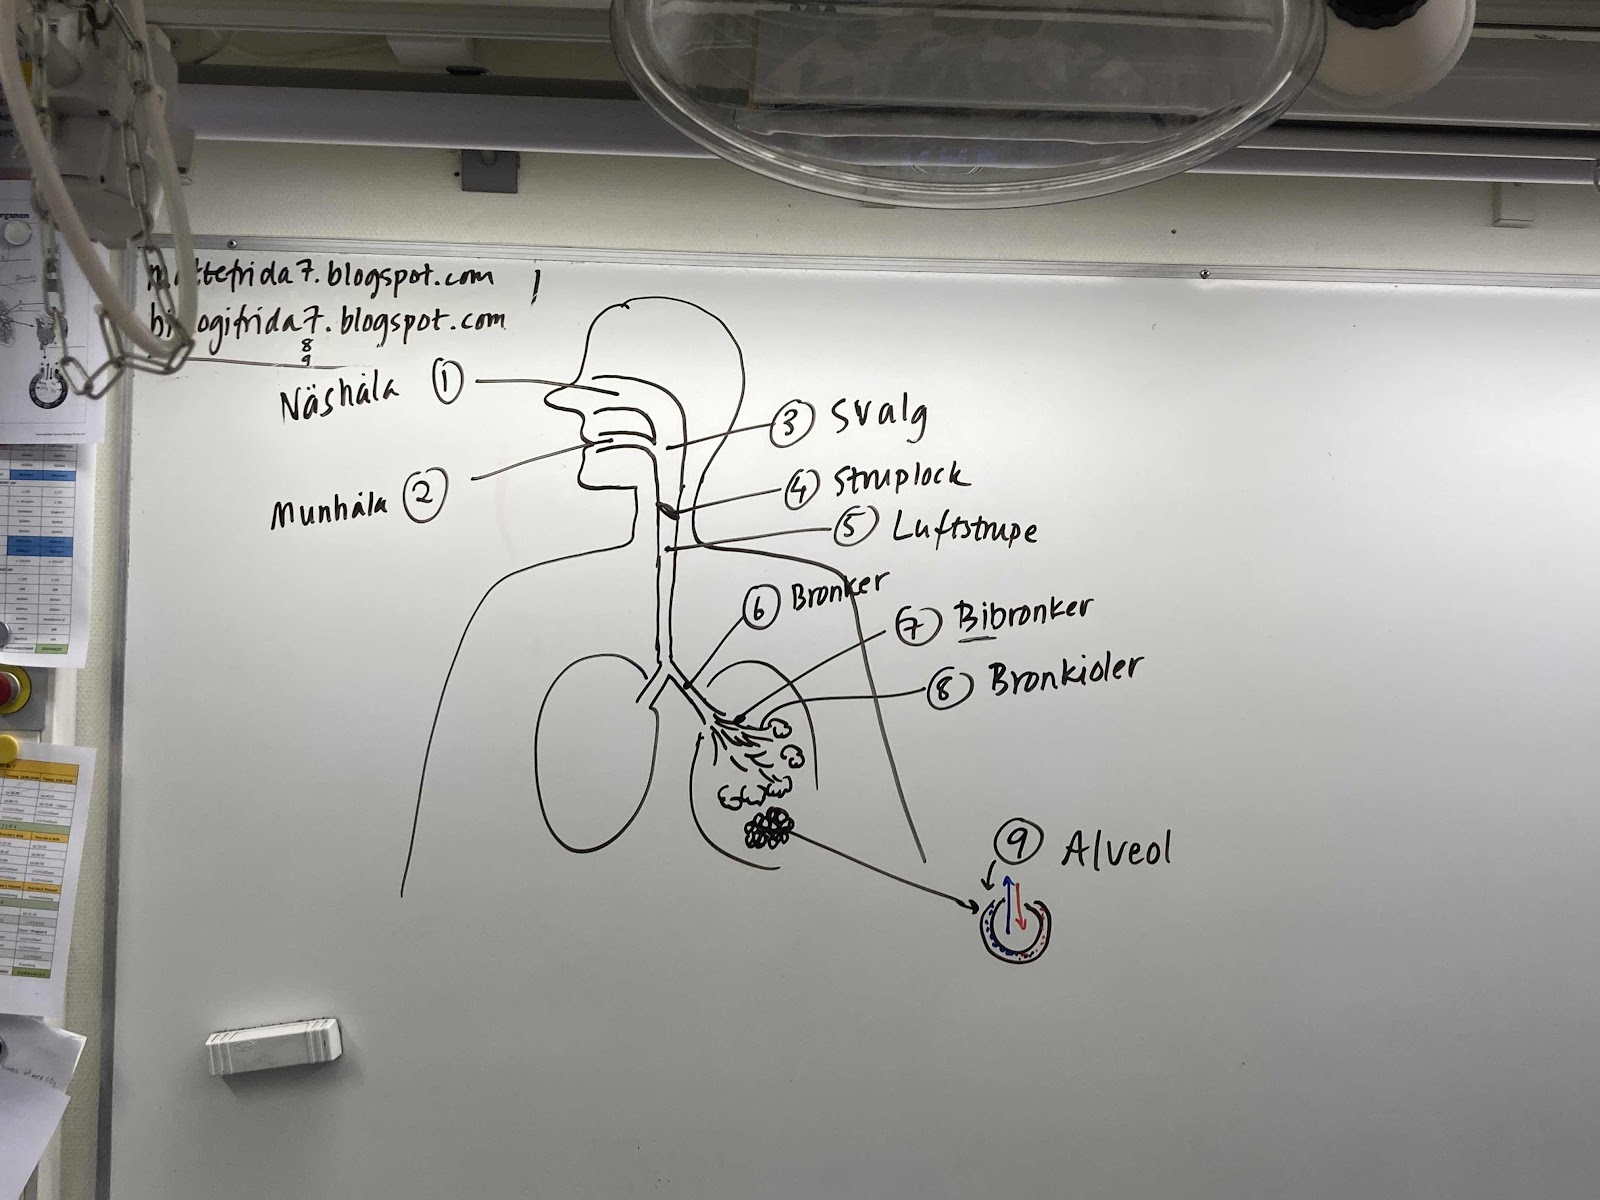 mattefrida7.blogspot.com !
biologifrida7.blogspot.com
8
9
Näshåla 1
Munhåla 2
3 Svalg
4 Struplock
5 Luftstrupe
6 Bronker
7 Bibronker
8 Bronkioler
9 Alveol